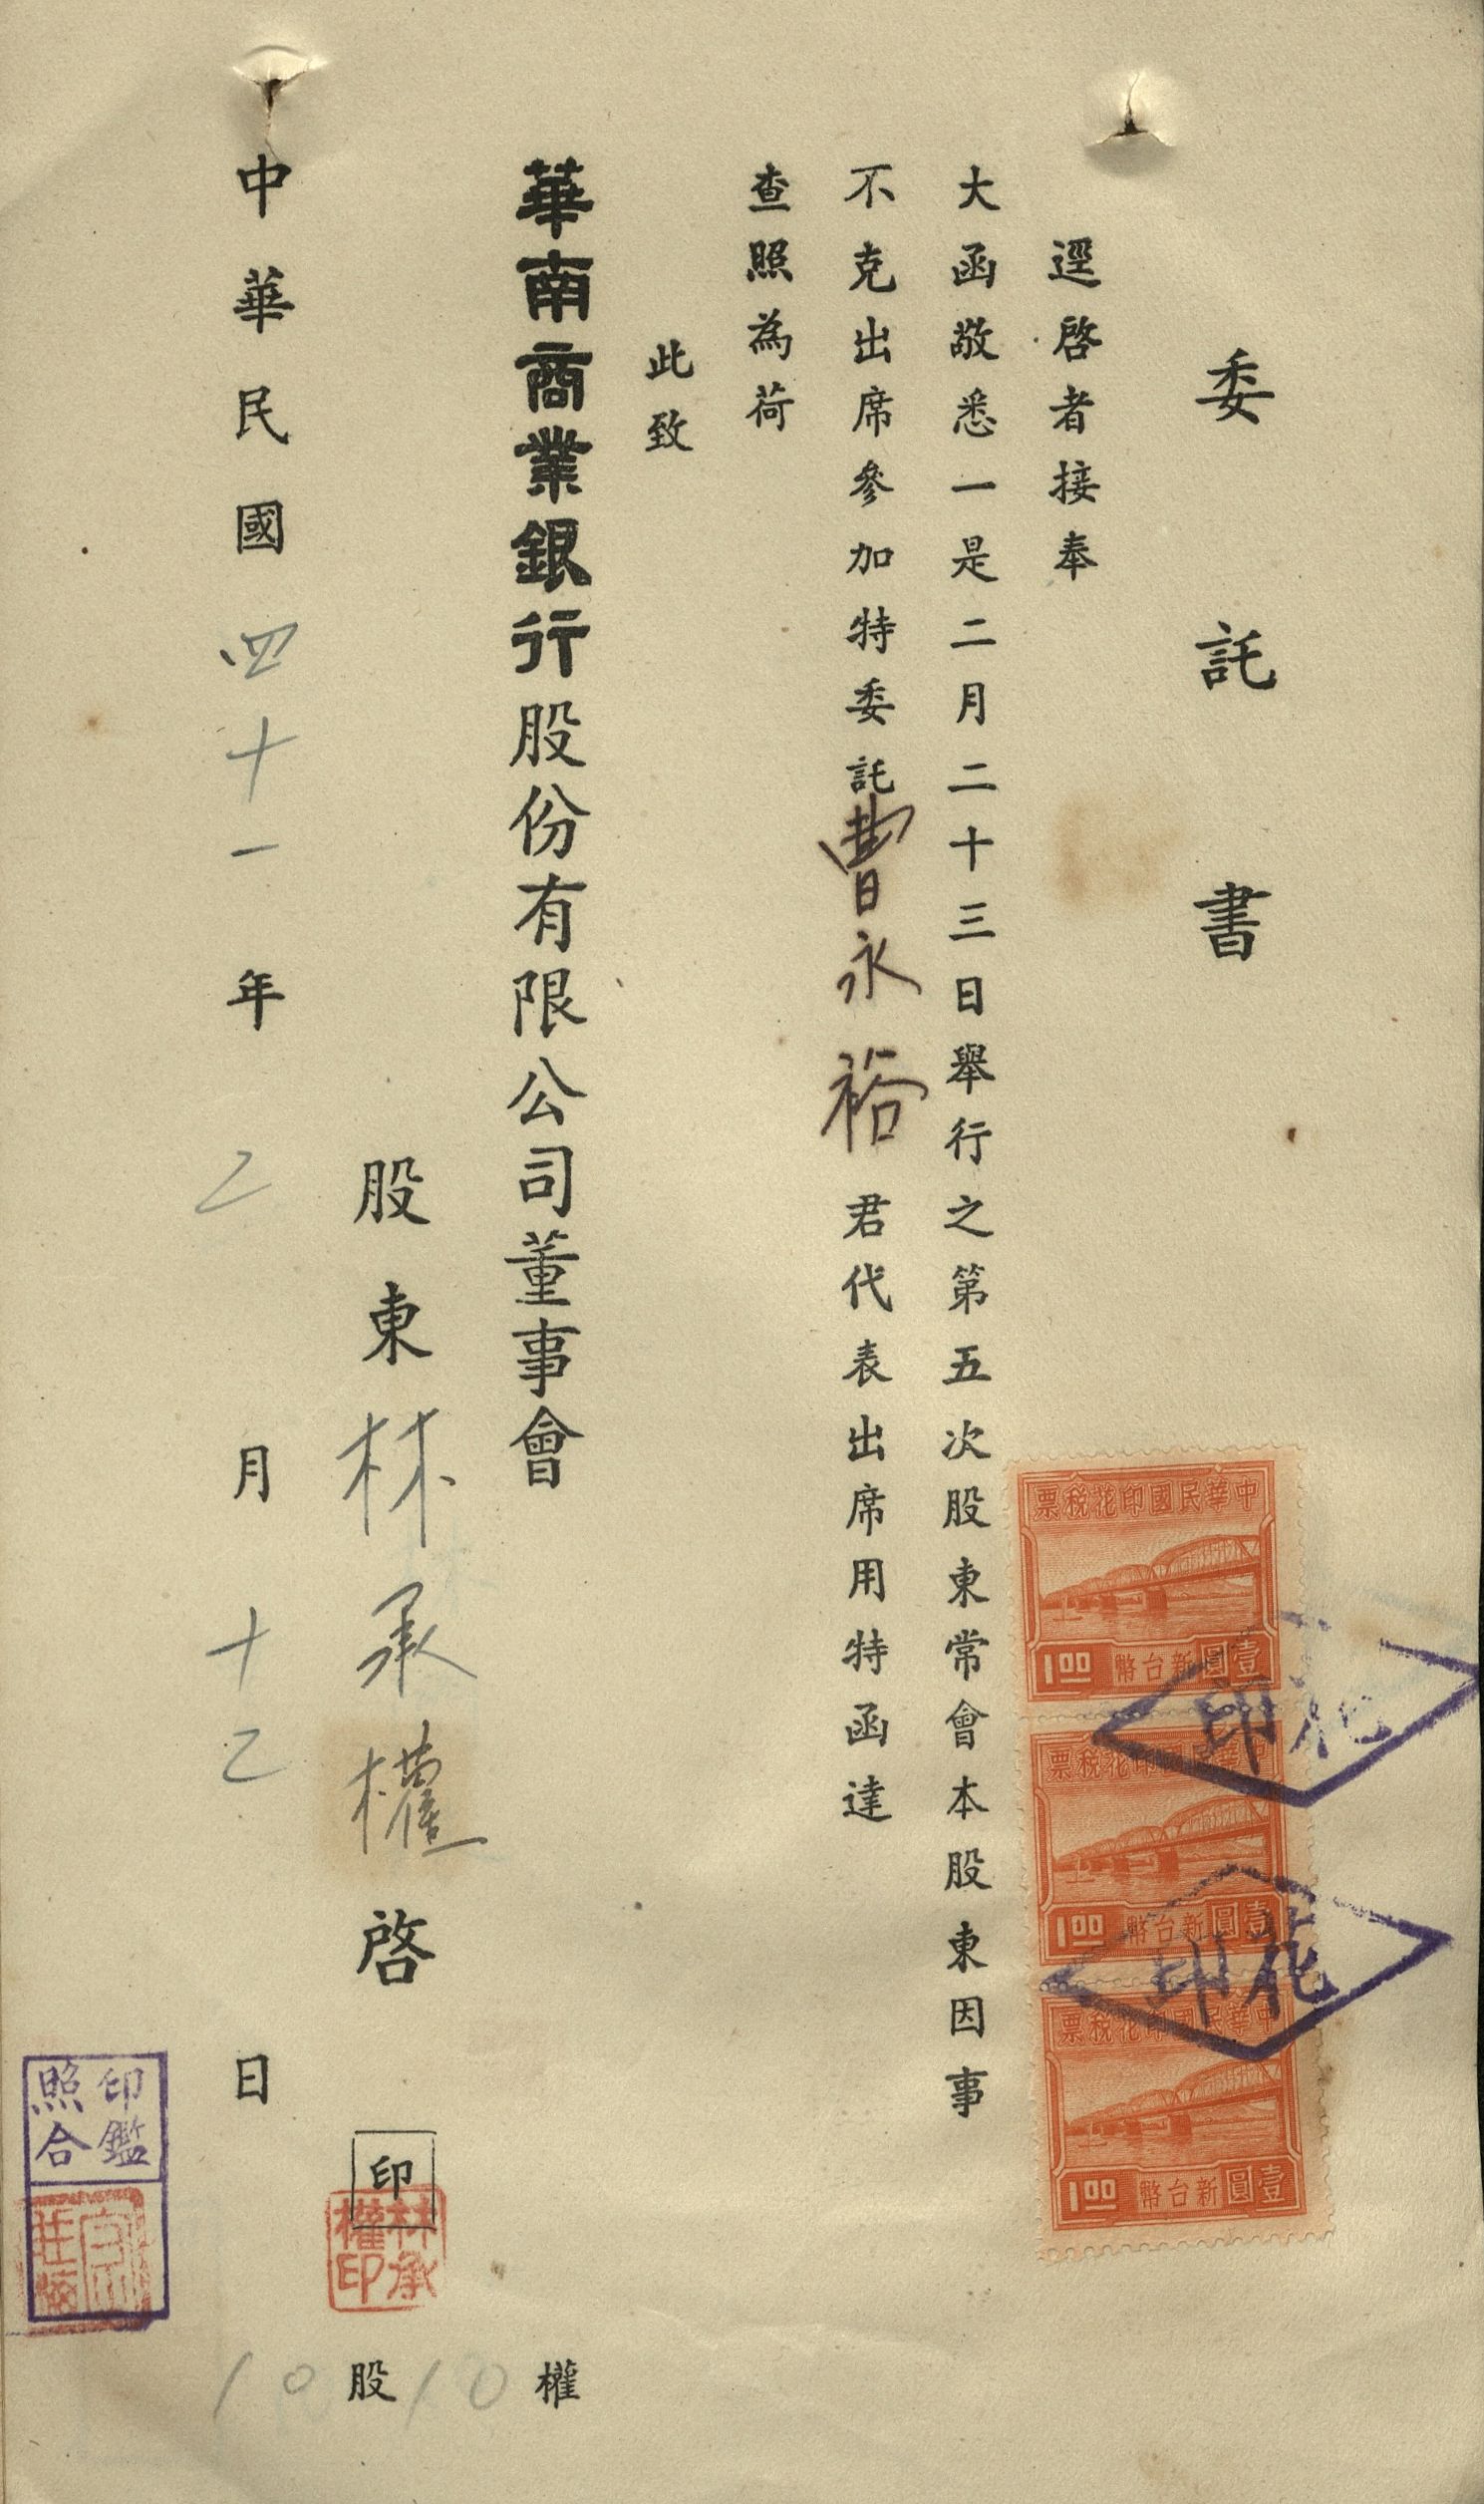 委託書
逕啓者接奉
大函敬悉一是二月二十三日舉行之第五次股東常會本股東因事
不克出席參加特委託曹永裕君代表出席用特函達
查照為荷
此致
華南商業銀行股份有限公司董事會
股東林承權啓
印
林承權印
中華民國四十一年乙月十乙日
權10
股10
印鑑
照合
中華民國印花稅票
壹圓新台幣1.00
中華民國印花稅票
壹圓新台幣1.00
中華民國印花稅票
壹圓新台幣1.00
花印
花印